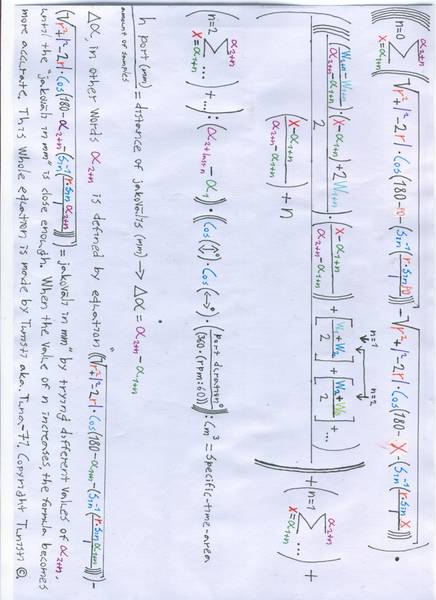 n=0 Σ α2+n X=α1+n √r²+l²-2rl·Cos(180- -(Sin⁻¹(r·Sin - √r²+l²-2rl·Cos(180-X-(Sin⁻¹(r·Sin X ·
W2+n-W1+n / α2+n-α1+n ·(X-α1+n)+2W1+n / 2 · (X-α1+n / α2+n-α1+n) + [W1+W2 / 2] + [W2+W3 / 2] +... n=1 n=2
(X-α1+n / α2+n-α1+n)+n + n=1 Σ α2+n X=α1+n ...) +
n=2 Σ α2+n X=α1+n ...) +... : (α2+last n - α1) · (Cos(↕)°·Cos(↔)° · (port duration° / (360·(rpm:60)))) : Cm³ = Specific-time-area
h port (mm) / amount of samples = distance of jakoväli's (mm) → Δα = α2+n - α1+n
Δα, in other words α2+n is defined by equation "((√r²+l²-2rl·Cos(180-α1+n-(Sin⁻¹(r·Sin α1+n / l))))-
(√r²+l²-2rl·Cos(180-α2+n-(Sin⁻¹(r·Sin α2+n / l)))) = jakoväli in mm" by trying different values of α2+n.
until the "jakoväli in mm" is close enough. When the value of n increases, the formula becomes
more accurate. This whole equation is made by Twnsti aka. Tuna-71. Copyright Twnsti ©.